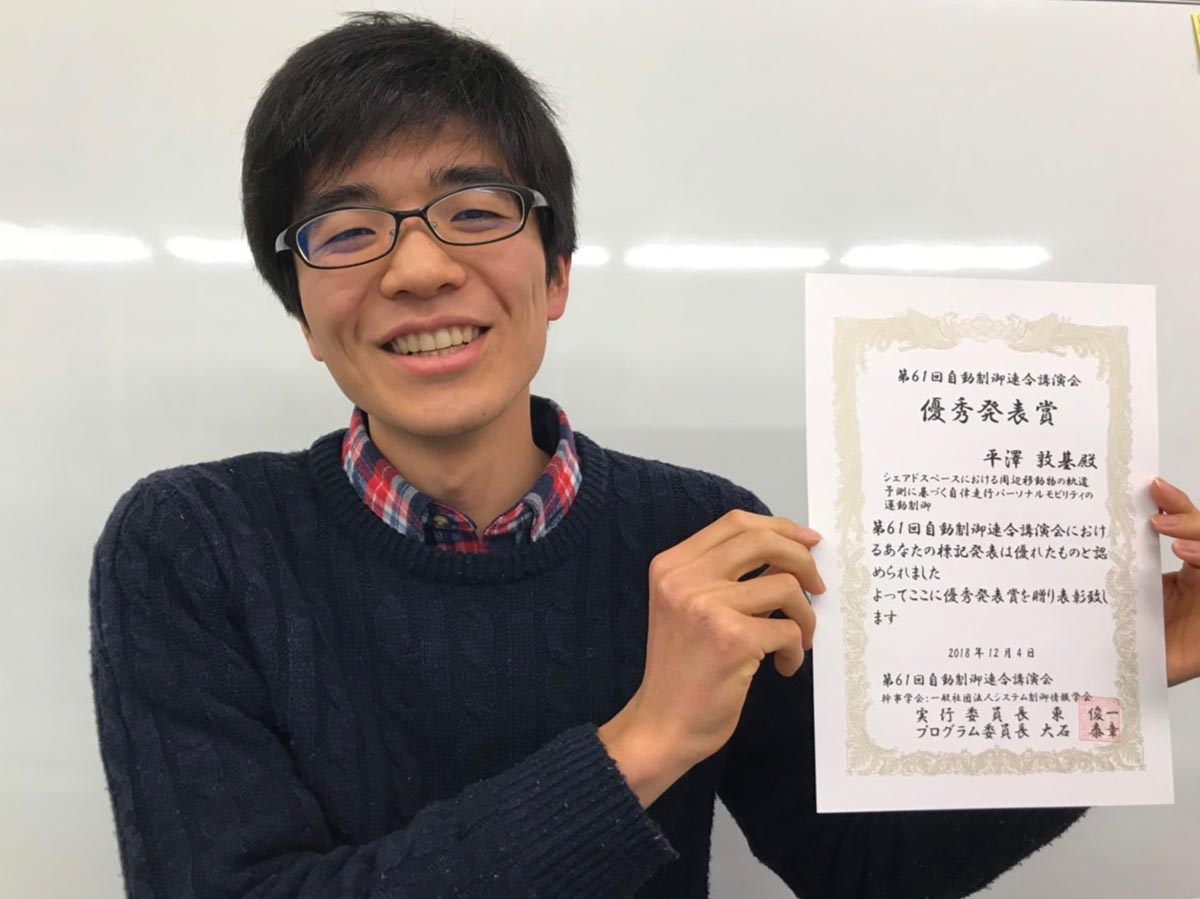 第61回自動制御連合講演会
優秀発表賞
平澤 敦基殿
シェアドスペースにおける周辺移動物の軌道
予測に基づく自律走行パーソナルモビリティの
運動制御
第61回自動制御連合講演会におけ
るあなたの標記発表は優れたものと認
められました
よってここに優秀発表賞を贈り表彰致し
ます
2018年12月4日
第61回自動制御連合講演会
幹事学会:一般社団法人システム制御情報学会
実行委員長 東 俊一
プログラム委員長 大石 泰章